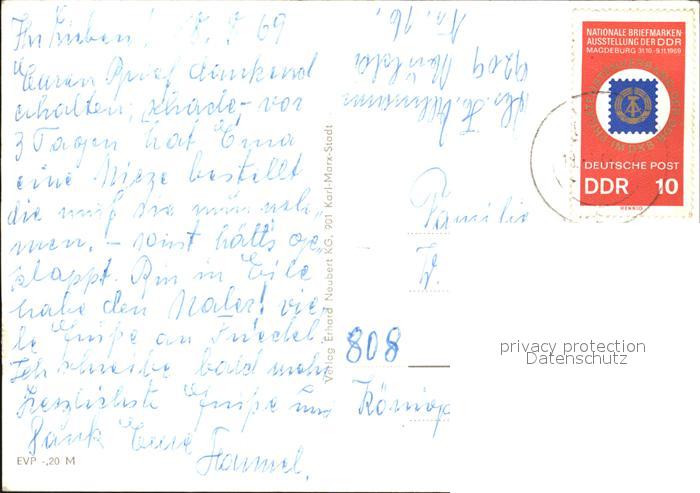 Ihr Lieben! 69
Euren Brief dankend
erhalten, schade, - vor
3 Tagen hat Erna
eine Nieze bestellt
die muß sie nun neh-
men, - sonst hätts ge-
klappt. Bin in Eile
habe den Maler! vie-
le Grüße an Friedel.
Ich schreibe bald mehr
Herzlichste Grüße und
Dank Eure
Hannel.
EVP -,20 M
Verlag Erhard Neubert KG, 901 Karl-Marx-Stadt
Nr. 16,
9209
NATIONALE BRIEFMARKEN-
AUSSTELLUNG DER DDR
MAGDEBURG 31.10.-9.11.1969
DEUTSCHE POST
DDR 10
HENNIG
Familie
808
König
privacy protection
Datenschutz